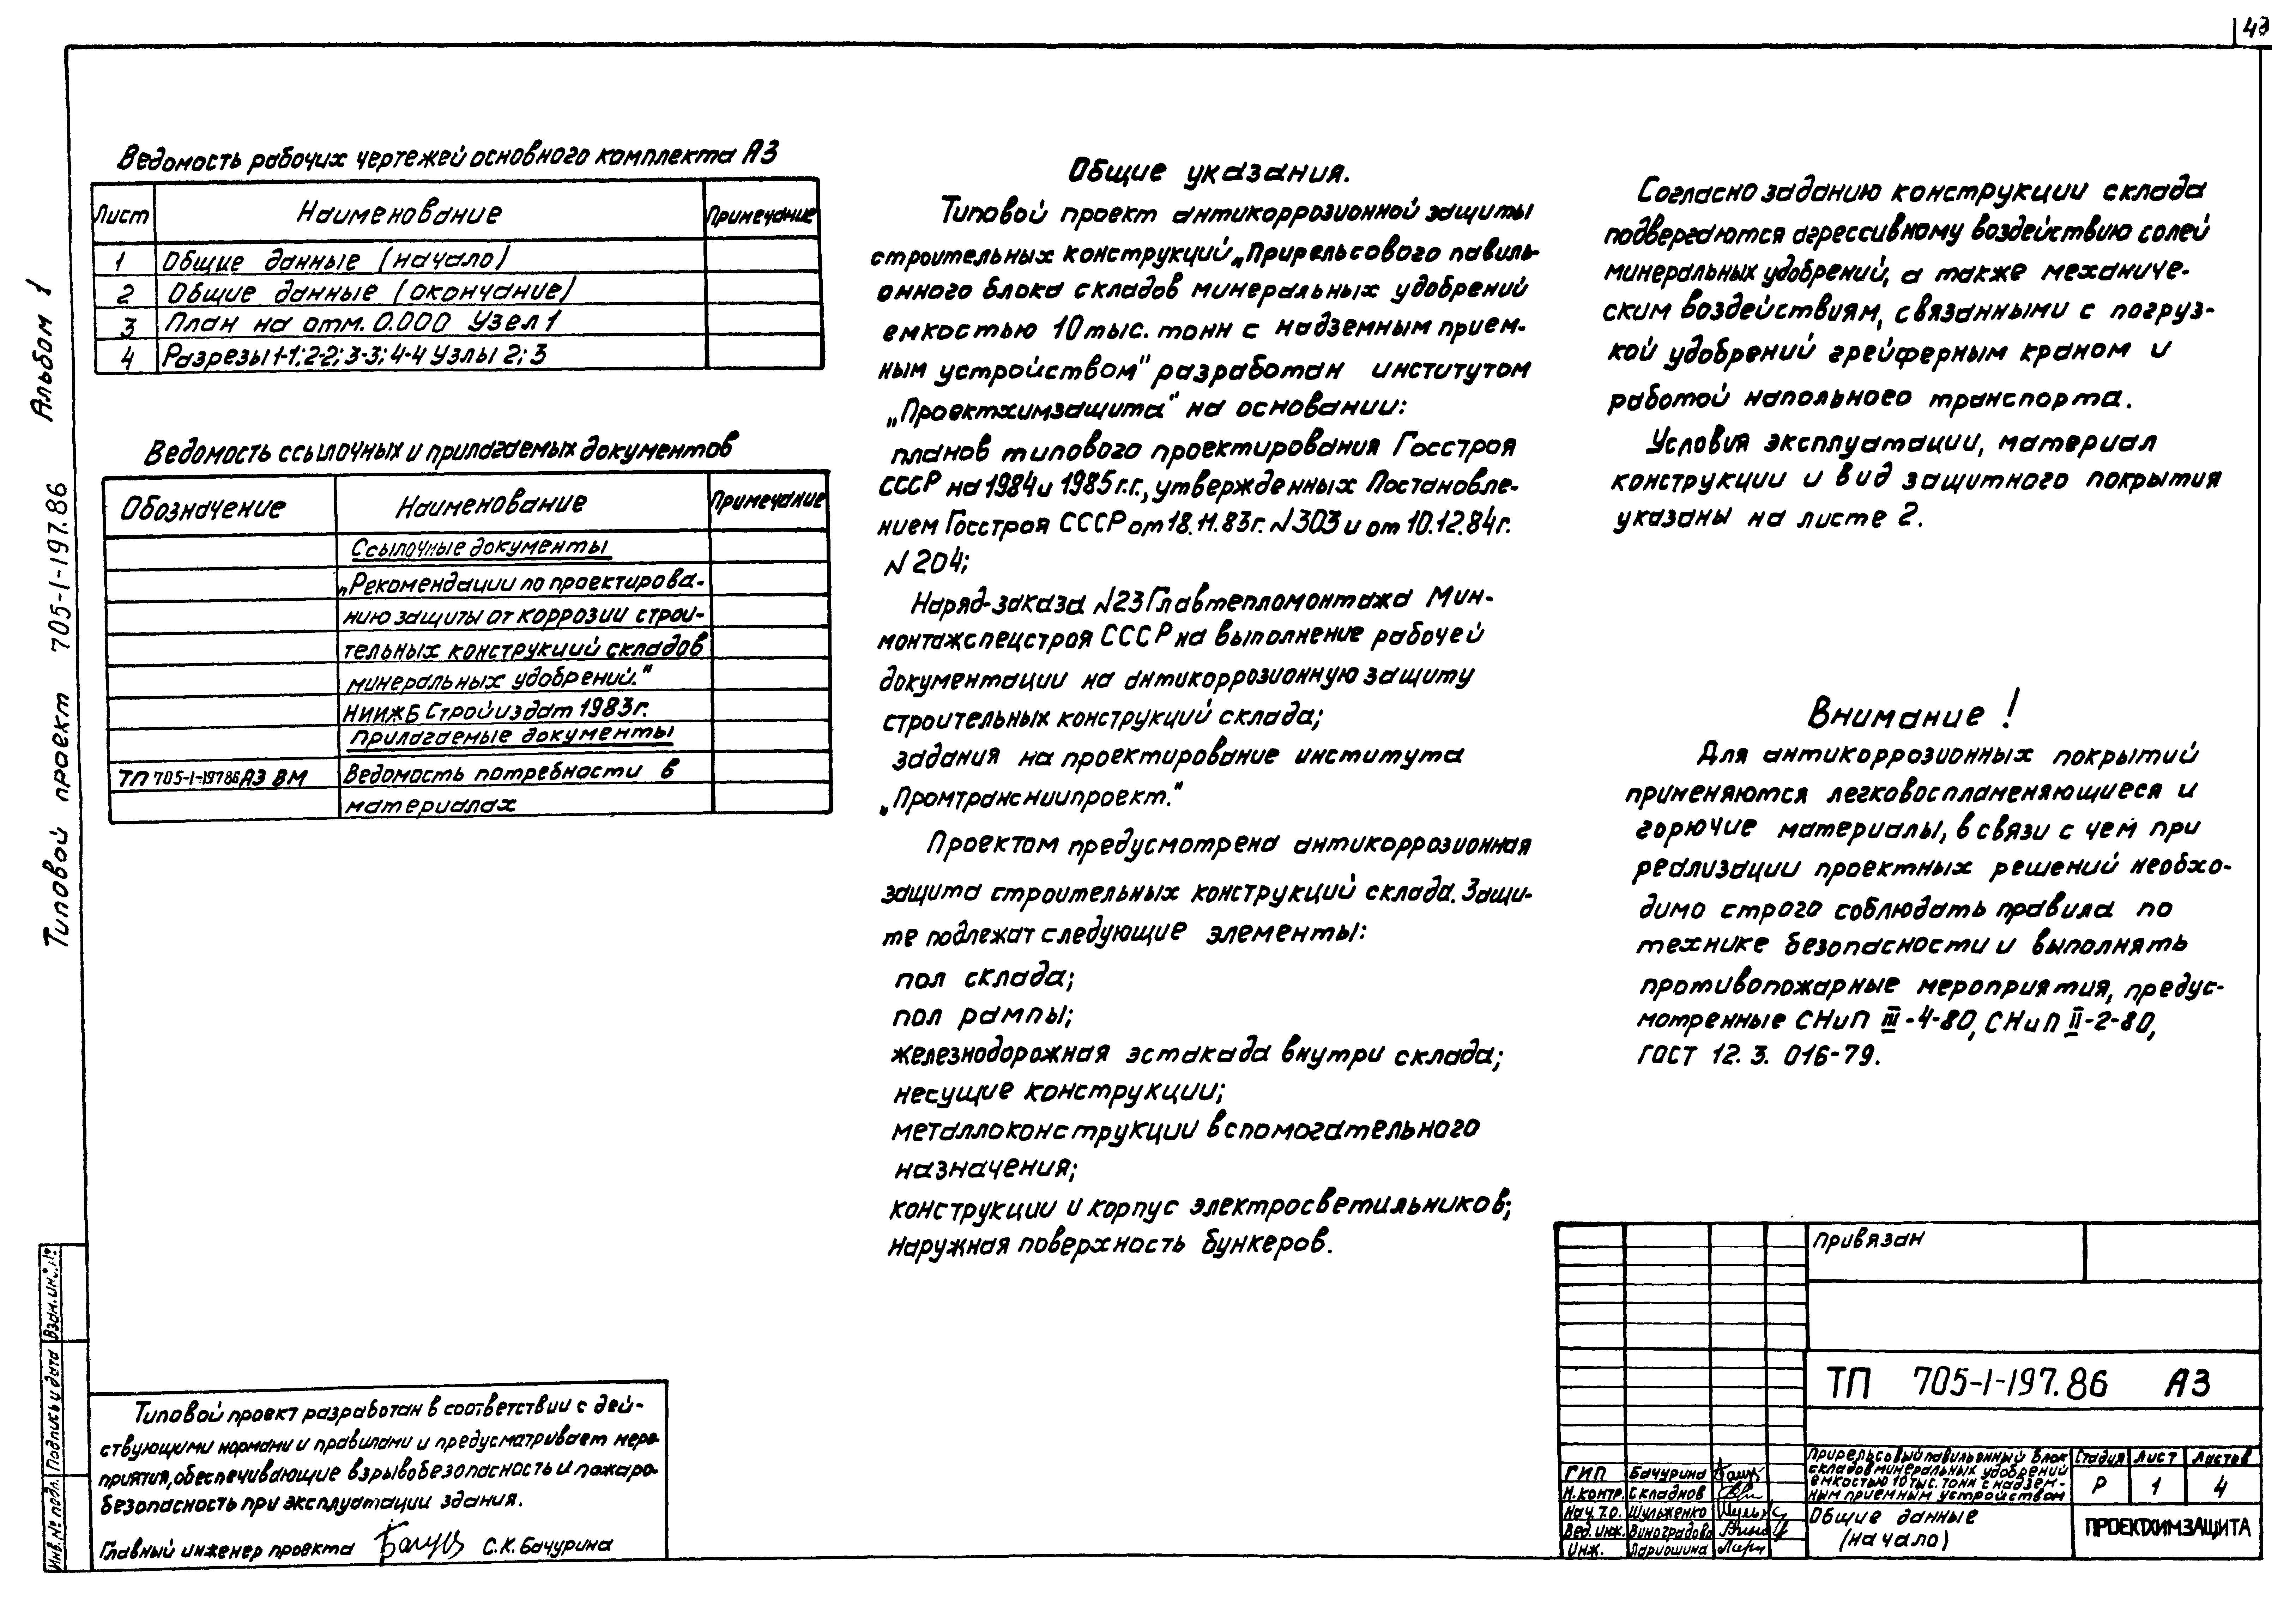 Альбом 1
Типовой проект 705-1-197.86
Ведомость рабочих чертежей основного комплекта АЗ
Лист Наименование Примечание
1 Общие данные (начало)
2 Общие данные (окончание)
3 План на отм. 0.000 Узел 1
4 Разрезы 1-1; 2-2; 3-3; 4-4 Узлы 2; 3
Ведомость ссылочных и прилагаемых документов
Обозначение Наименование Примечание
Ссылочные документы
„Рекомендации по проектирова-
нию защиты от коррозии строи-
тельных конструкций складов
минеральных удобрений."
НИИЖБ Стройиздат 1983г.
Прилагаемые документы
ТП 705-1-197.86 АЗ ВМ Ведомость потребности в
материалах
Общие указания.
Типовой проект антикоррозионной защиты
строительных конструкций „Прирельсового павиль-
онного блока складов минеральных удобрений
емкостью 10 тыс. тонн с надземным прием-
ным устройством" разработан институтом
„Проектхимзащита" на основании:
планов типового проектирования Госстроя
СССР на 1984 и 1985 г.г., утвержденных Постановле-
нием Госстроя СССР от 18.11.83г. N303 и от 10.12.84г.
N204;
Наряд-заказа N23 Главтепломонтажа Мин-
монтажспецстроя СССР на выполнение рабочей
документации на антикоррозионную защиту
строительных конструкций склада;
задания на проектирование института
„Промтрансниипроект."
Проектом предусмотрена антикоррозионная
защита строительных конструкций склада. Защи-
те подлежат следующие элементы:
пол склада;
пол рампы;
железнодорожная эстакада внутри склада;
несущие конструкции;
металлоконструкции вспомогательного
назначения;
конструкции и корпус электросветильников;
наружная поверхность бункеров.
Согласно заданию конструкции склада
подвергаются агрессивному воздействию солей
минеральных удобрений, а также механиче-
ским воздействиям, связанными с погруз-
кой удобрений грейферным краном и
работой напольного транспорта.
Условия эксплуатации, материал
конструкции и вид защитного покрытия
указаны на листе 2.
Внимание!
Для антикоррозионных покрытий
применяются легковоспламеняющиеся и
горючие материалы, в связи с чем при
реализации проектных решений необхо-
димо строго соблюдать правила по
технике безопасности и выполнять
противопожарные мероприятия, предус-
мотренные СНиП III-4-80, СНиП II-2-80,
ГОСТ 12.3.016-79.
Типовой проект разработан в соответствии с дей-
ствующими нормами и правилами и предусматривает меро-
приятия, обеспечивающие взрывобезопасность и пожаро-
безопасность при эксплуатации здания.
Главный инженер проекта С.К. Бачурина
Инв. № подл. Подпись и дата Взам. инв. №
Привязан
ТП 705-1-197.86 АЗ
ГИП Бачурина
Н.контр. Складнов
Нач. т.о. Шульженко
Вед. инж. Виноградова
Инж. Ларюшина
Прирельсовый павильонный блок
складов минеральных удобрений
емкостью 10 тыс. тонн с надзем-
ным приемным устройством
Стадия Лист Листов
Р 1 4
Общие данные
(начало)
ПРОЕКТХИМЗАЩИТА